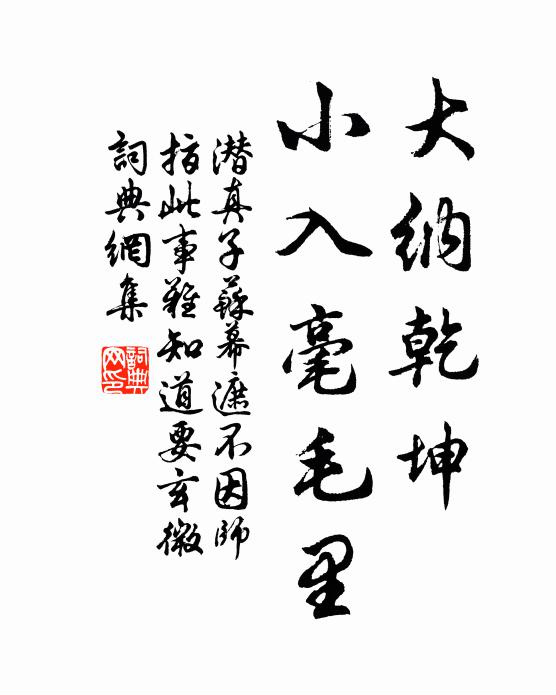 大纳乾坤
小入毫毛里
潜真子蘇幕遮不因師
指此事難知道要玄微
詞典網集
詞典网印